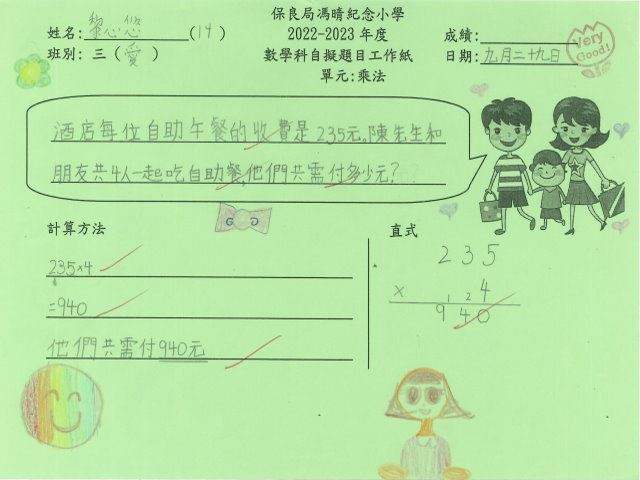 保良局馮晴紀念小學
姓名:黎心悠(14)
2022-2023 年度
成績:
Very Good!
班別: 三(愛)
數學科自擬題目工作紙
日期:九月二十九日
單元:乘法
酒店每位自助午餐的收費是235元。陳先生和
朋友共4人一起吃自助餐,他們共需付多少元?
計算方法
235×4
=940
他們共需付940元
直式
235
× 4
1 2
940
G G